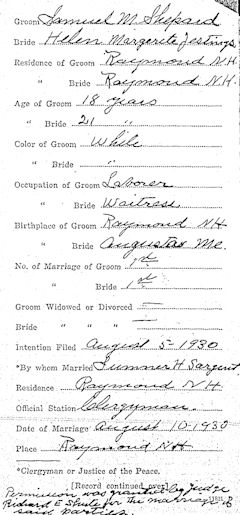 Groom Samuel M. Shepard
Bride Helen Margerite Jestings
Residence of Groom Raymond N.H.
" Bride Raymond N.H.
Age of Groom 18 years
" Bride 21 "
Color of Groom White
" Bride "
Occupation of Groom Laborer
" Bride Waitress
Birthplace of Groom Raymond NH
" Bride Augusta Me.
No. of Marriage of Groom 1st
" Bride 1st
Groom Widowed or Divorced —
Bride " " " —
Intention Filed August 5-1930
*By whom Married Sumner H Sargent
Residence Raymond NH
Official Station Clergyman
Date of Marriage August 10-1930
Place Raymond NH
*Clergyman or Justice of the Peace.
[Record continued over]
Permission was granted by Judge
Richard E Shute for the marriage of
said parties.